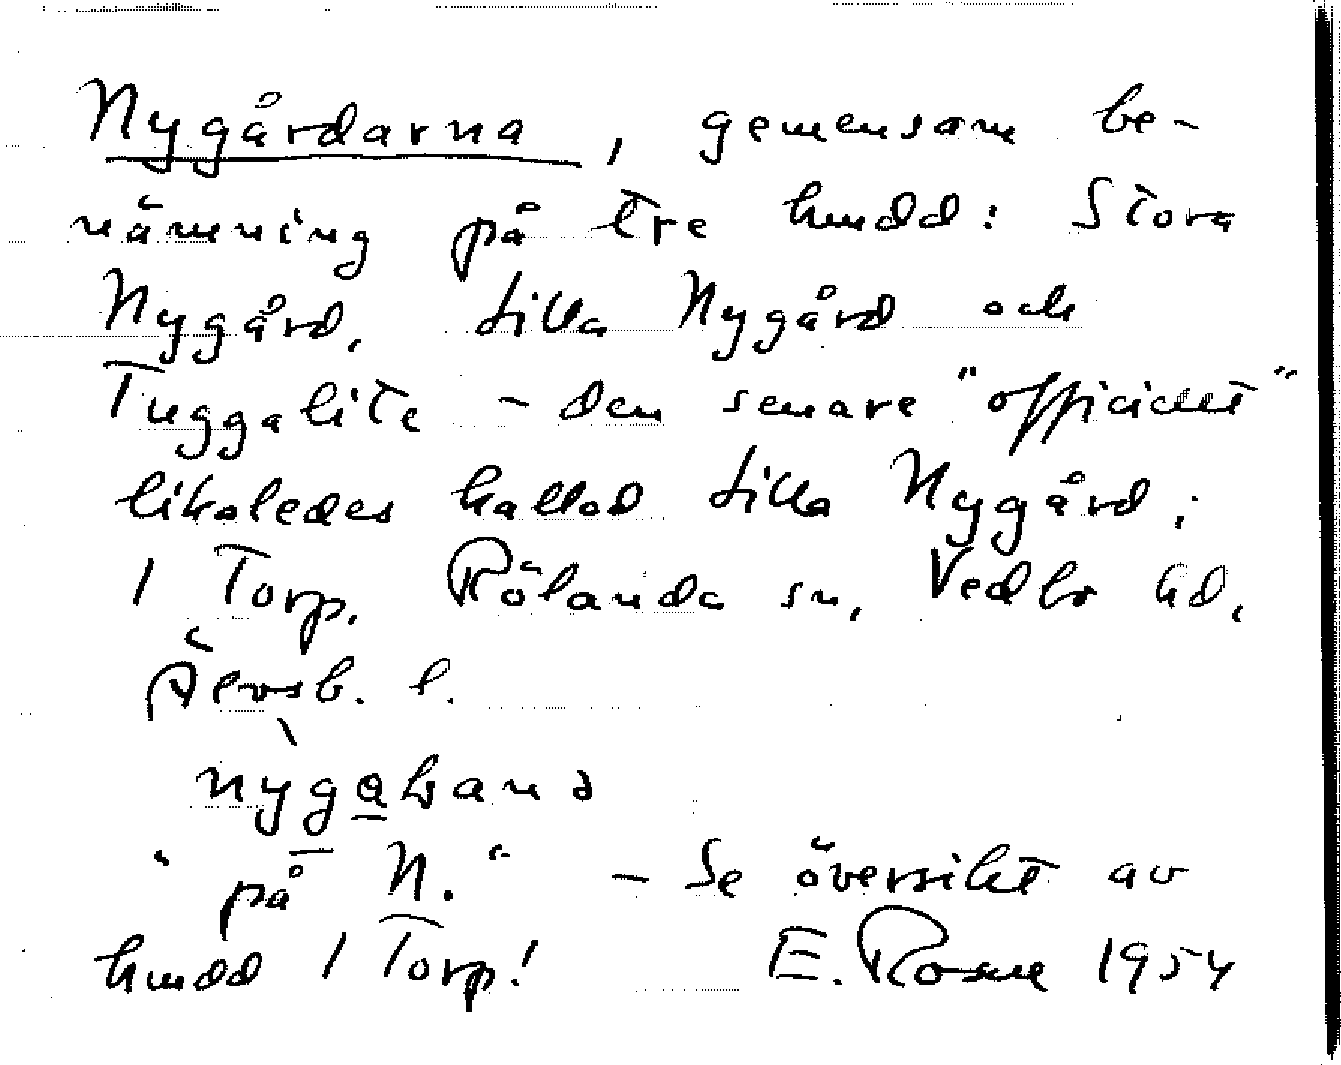 Nygårdarna, gemensam be-
nämning på tre hmdd: Stora
Nygård, Lilla Nygård och
Tuggalite - den senare "officiellt"
likaledes kallad Lilla Nygård;
i Torp, Rölanda sn, Vedbo hd,
Älvsb. l.
"på N." - Se översikt av
hmdd i Torp! E. Rosell 1954